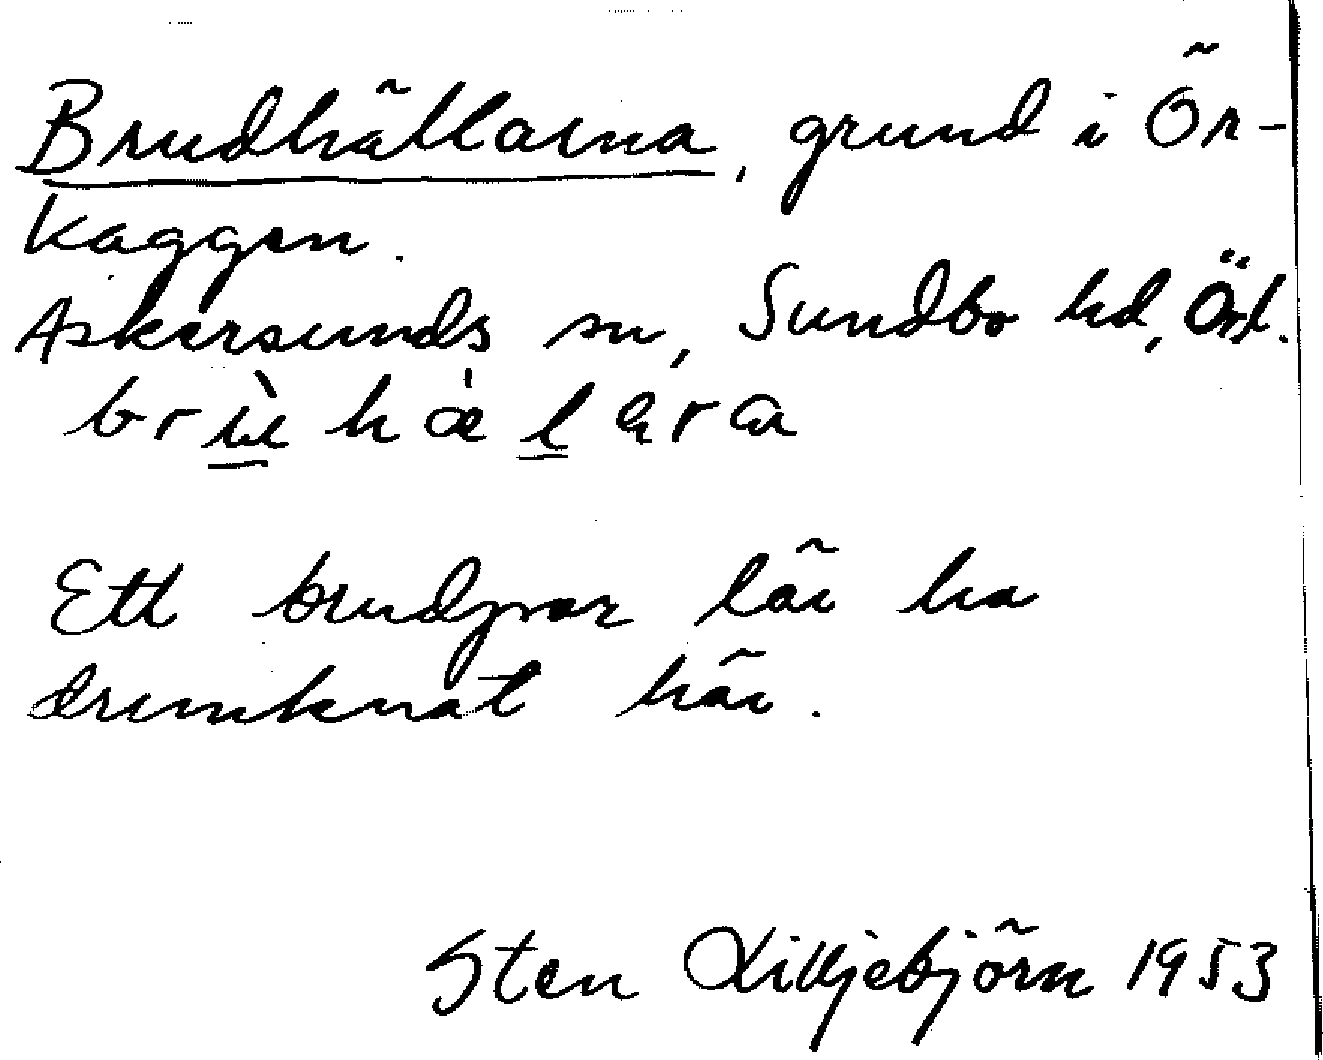 Brudhällarna, grund i Ör-
kaggen.
Askersunds sn, Sundbo hd, Örl.
brù hæ̀lara
Ett brudpar lär ha
drunknat här.
Sten Lilljebjörn 1953